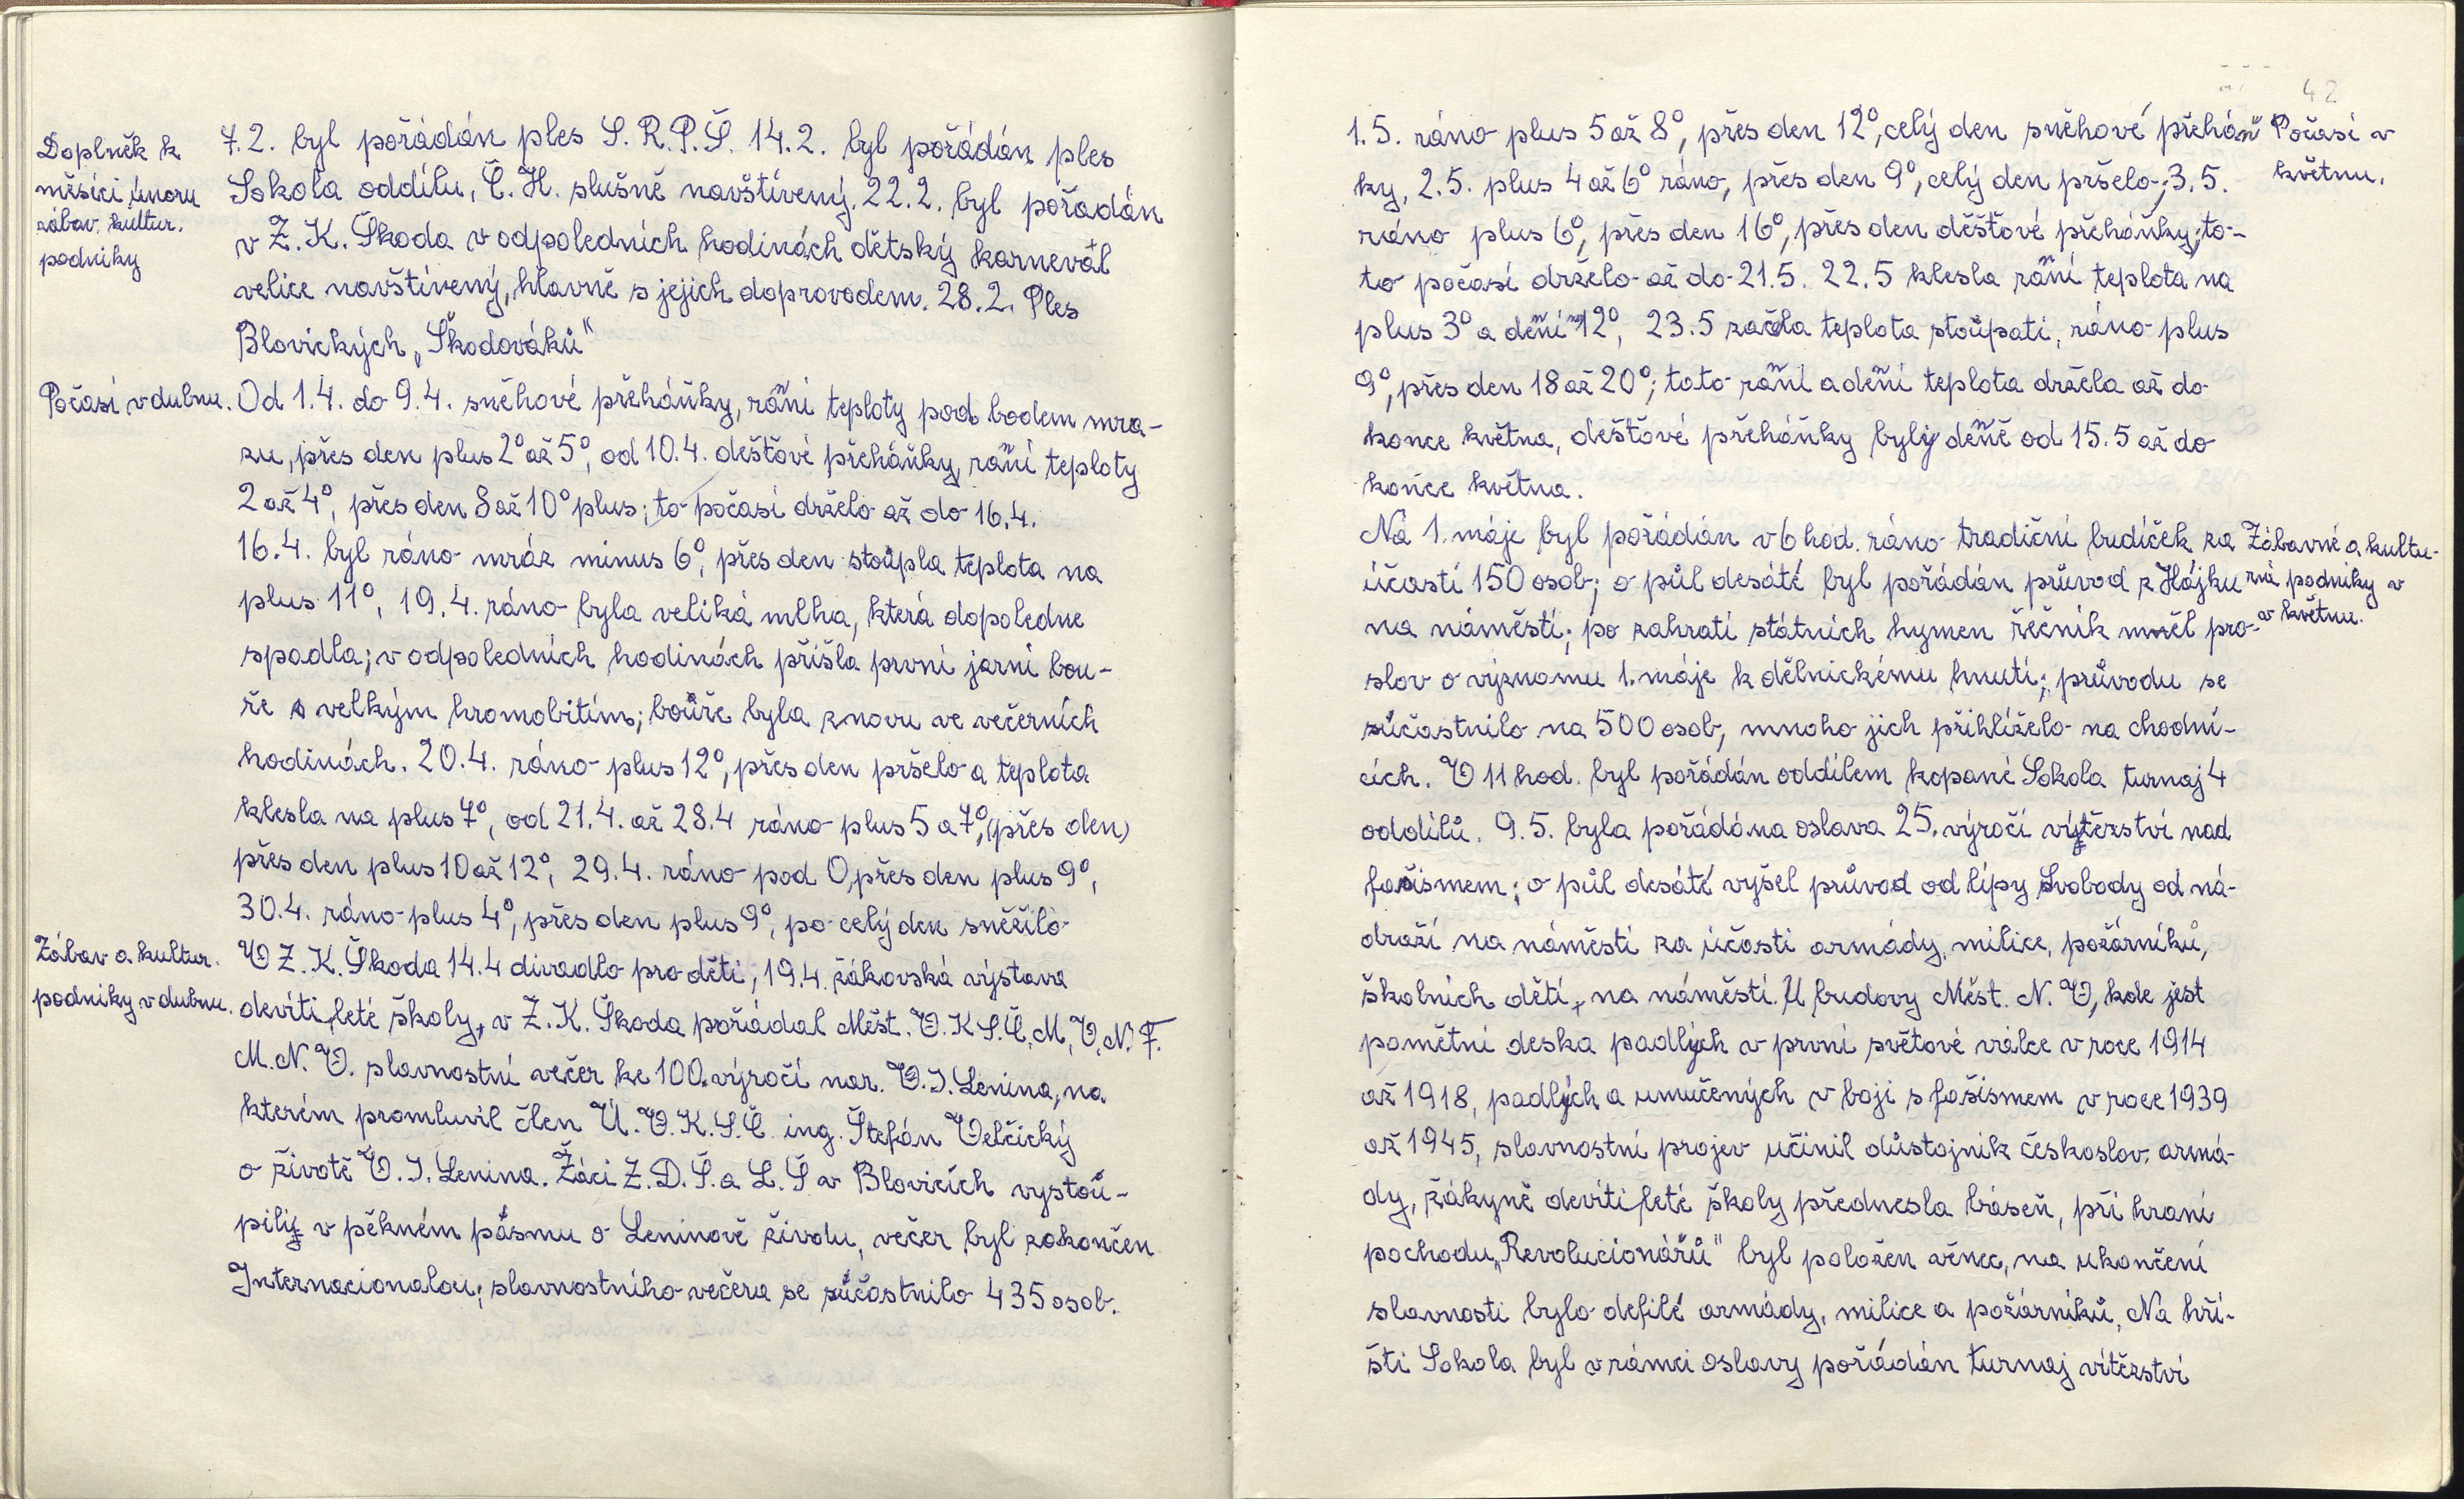 Doplněk k
měsíci únoru
zábav. kultur.
podniky
7.2. byl pořádán ples S.R.P.Š. 14.2. byl pořádán ples
Sokola oddílu, Č.H. slušně navštívený. 22.2. byl pořadán
v Z.K. Škoda v odpoledních hodinách dětský karneval
velice navštívený, hlavně s jejich doprovodem. 28.2. Ples
Blovických „Škodováků"
Počasí v dubnu.
Od 1.4. do 9.4. sněhové přeháňky, raňí teploty pod bodem mra-
zu, přes den plus 2° až 5°, od 10.4. deštové přeháňky, raňí teploty
2 až 4°, přes den 8 až 10° plus; to počasí drželo až do 16.4.
16.4. byl ráno mráz minus 6°, přes den stoupla teplota na
plus 11°, 19.4. ráno byla veliká mlha, která dopoledne
spadla; v odpoledních hodinách přišla první jarní bou-
ře s velkým hromobitím; bouře byla znovu ve večerních
hodinách. 20.4. ráno plus 12°, přes den pršelo a teplota
klesla na plus 7°, od 21.4. až 28.4 ráno plus 5 a 7°, (přes den)
přes den plus 10 až 12°, 29.4. ráno pod 0, přes den plus 9°,
30.4. ráno plus 4°, přes den plus 9°, po celý den sněžilo
Zábav a kultur.
podniky v dubnu.
V Z.K. Škoda 14.4 divadlo pro děti, 19.4. žákovská výstava
devítileté školy, v Z.K. Škoda pořádal Měst. V.K.S.Č, M,V.N.F.
M.N.V. slavnostní večer ke 100. výročí nar. V.I. Lenina, na
kterém promluvil člen Ú.V.K.S.Č. ing. Štefán Velčický
o životě V.I. Lenina. Žáci Z.D.Š. a L.Š v Blovicích vystou-
pily v pěkném pásmu o Leninově životu, večer byl zakončen
Internacionalou; slavnostního večera se súčastnilo 435 osob.
42
1.5. ráno plus 5 až 8°, přes den 12°, celý den sněhové přeháň
ky, 2.5. plus 4 až 6° ráno, přes den 9°, celý den pršelo; 3.5.
ráno plus 6°, přes den 16°, přes den děšťové přeháňky; to-
to počasí drželo až do 21.5. 22.5 klesla raňí teplota na
plus 3° a deňí 12°, 23.5 začala teplota stoupati, ráno plus
9°, přes den 18 až 20°; tato raňí a deňí teplota držela až do
konce května, dešťové přeháňky byly deňě od 15.5 až do
konce května.
Počasí v
květnu.
Na 1. máje byl pořádán v 6 hod. ráno tradiční budíček za
účastí 150 osob; o půl desáté byl pořádán průvod z Hájku
na náměstí; po zahratí státních hymen řečník měl pro-
slov o významu 1. máje k dělnickému hnutí; průvodu se
súčastnilo na 500 osob, mnoho jich přihlíželo na chodní-
cích. V 11 hod. byl pořádán oddílem kopané Sokola turnaj 4
oddílů. 9.5. byla pořádána oslava 25. výročí vítězství nad
fašismem; o půl desáté vyšel průvod od lípy Svobody od ná-
draží na náměstí za účasti armády, milice, požárníků,
školních dětí, na náměstí. U budovy Měst. N.V, kde jest
pamětní deska padlých v první světové válce v roce 1914
až 1918, padlých a umučených v boji s fašismem v roce 1939
až 1945, slavnostní projev učinil důstojník českoslov. armá-
dy, žákyně devítileté školy přednesla báseň, při hraní
pochodu „Revolucionářů" byl položen věnec, na ukončení
slavnosti bylo defilé armády, milice a požárníků, Na hři-
šti Sokola byl v rámci oslavy pořádán turnaj vítězství
Zábavné a kultu-
rní podniky v
v květnu.